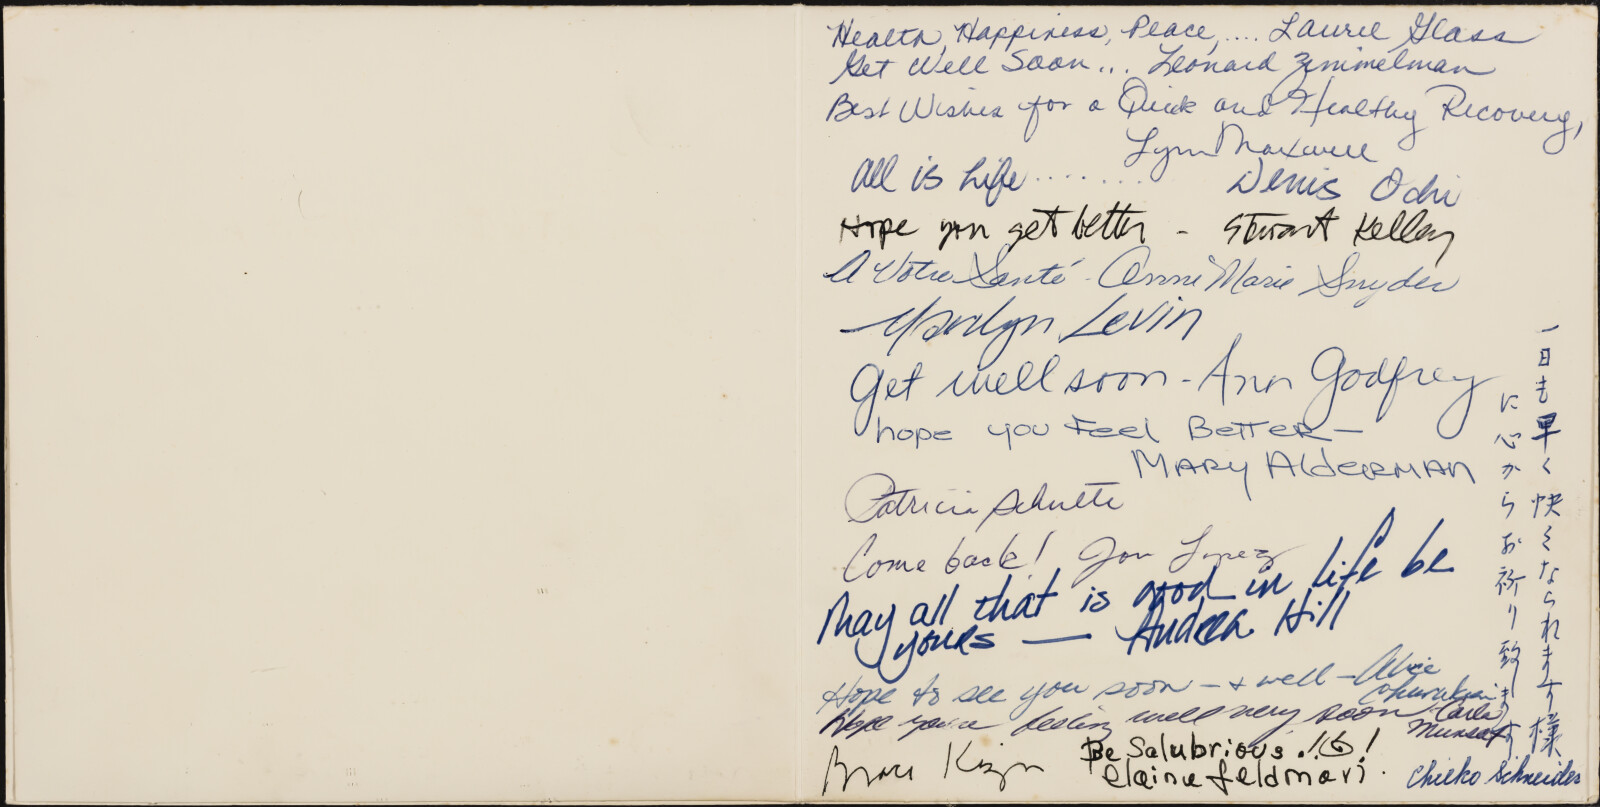 Health, Happiness, Peace, .... Laurie Glass
Get Well Soon ... Leonard Zimmelman
Best Wishes for a Quick and Healthy Recovery,
Lynn Maxwell
All is Life ........ Denis Odri
Hope you get better - Stuart Kelley
A Votre Santé - Anne Marie Snyder
Marilyn Levin
Get well soon - Ann Godfrey
hope you Feel Better —
Mary Alderman
Patricia Schulte
Come back! Jon Lopez
May all that is good in life be
yours — Andrea Hill
Hope to see you soon - + well - Alice
Hope you're feeling well very soon Carla
Be Salubrious.!!
elaine feldman.
一日も早く快くなられます様
に心からお祈り致します
Chieko Schneider